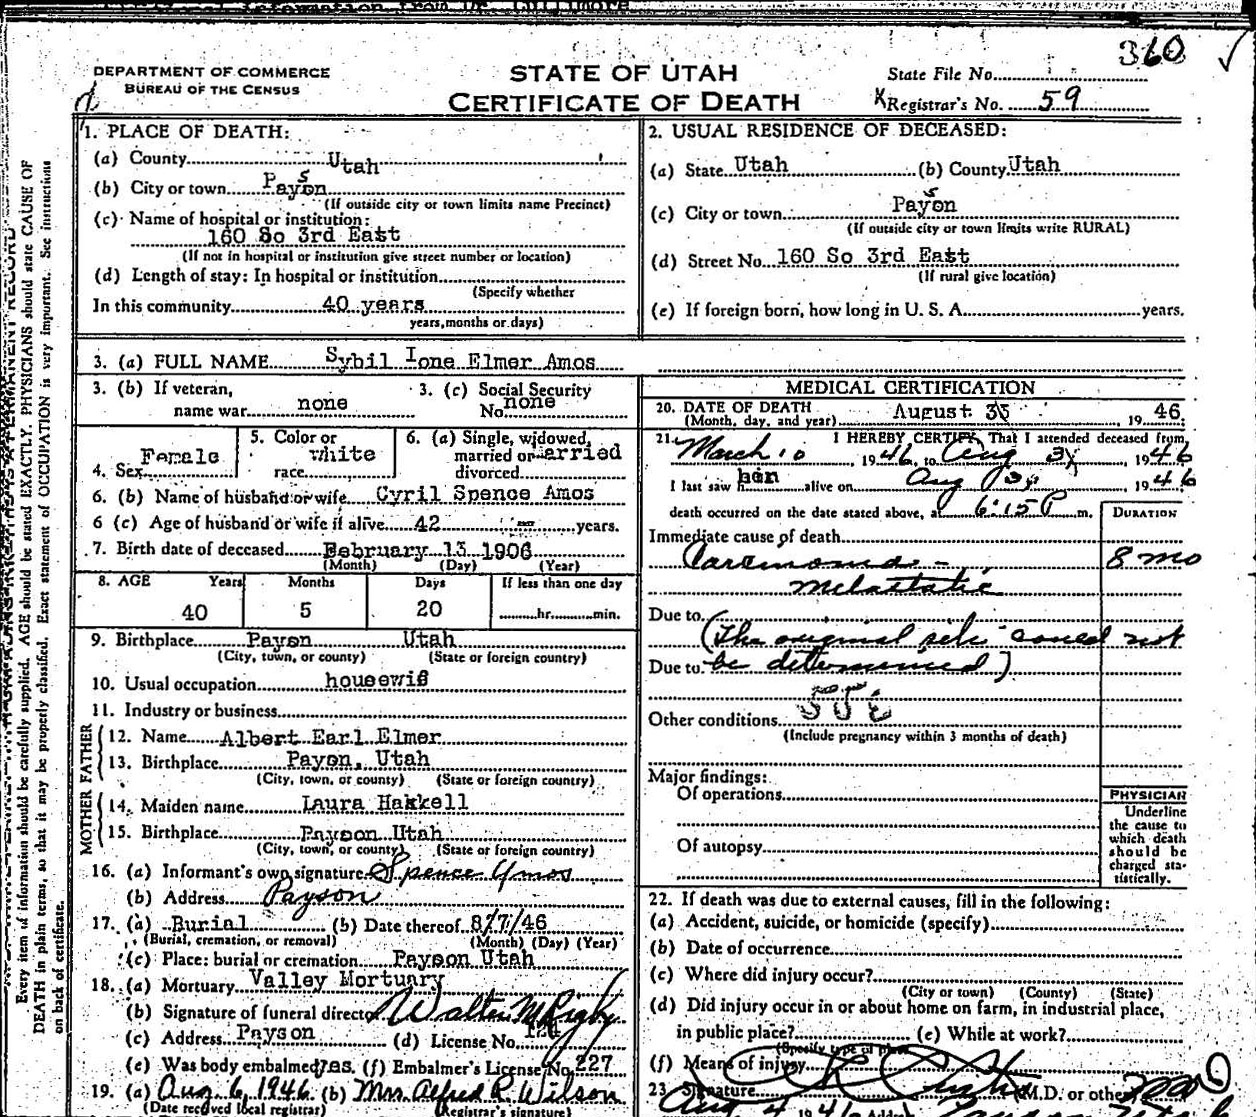 Additional Information from Dr. Cullimore
360
DEPARTMENT OF COMMERCE
BUREAU OF THE CENSUS
STATE OF UTAH
CERTIFICATE OF DEATH
State File No.
Registrar's No. 59
1. PLACE OF DEATH:
(a) County Utah
(b) City or town Payson
(If outside city or town limits name Precinct)
(c) Name of hospital or institution:
160 So 3rd East
(If not in hospital or institution give street number or location)
(d) Length of stay: In hospital or institution
(Specify whether
In this community 40 years
years, months or days)
2. USUAL RESIDENCE OF DECEASED:
(a) State Utah (b) County Utah
(c) City or town Payson
(If outside city or town limits write RURAL)
(d) Street No. 160 So 3rd East
(If rural give location)
(e) If foreign born, how long in U. S. A. years.
3. (a) FULL NAME Sybil Ione Elmer Amos
3. (b) If veteran, name war none
3. (c) Social Security No. none
4. Sex Female
5. Color or race white
6. (a) Single, widowed, married or divorced married
6. (b) Name of husband or wife Cyril Spence Amos
6 (c) Age of husband or wife if alive 42 years.
7. Birth date of deceased February 13 1906
(Month) (Day) (Year)
8. AGE Years Months Days If less than one day
40 5 20 hr. min.
9. Birthplace Payson Utah
(City, town, or county) (State or foreign country)
10. Usual occupation housewife
11. Industry or business
FATHER
12. Name Albert Earl Elmer
13. Birthplace Payson, Utah
(City, town, or county) (State or foreign country)
MOTHER
14. Maiden name Laura
15. Birthplace Payson Utah
(City, town, or county) (State or foreign country)
16. (a) Informant's own signature Spence Amos
(b) Address Payson
17. (a) Burial (b) Date thereof 8/7/46
(Burial, cremation, or removal) (Month) (Day) (Year)
(c) Place: burial or cremation Payson Utah
18. (a) Mortuary Valley Mortuary
(b) Signature of funeral director Walter M Rigby
(c) Address Payson (d) License No.
(e) Was body embalmed yes. (f) Embalmer's License No. 227
19. (a) Aug. 6, 1946 (b) Mrs. Alfred R. Wilson
(Date received local registrar) (Registrar's signature)
MEDICAL CERTIFICATION
20. DATE OF DEATH August 3 1946
(Month, day, and year)
21. I HEREBY CERTIFY, That I attended deceased from
March 10, 1946, to Aug 3, 1946
I last saw her alive on Aug 3, 1946
death occurred on the date stated above, at 6:15 P m.
DURATION
Immediate cause of death
Carcinoma - 8 mo
Metastatic
Due to (The original site could not
Due to be determined)
55
Other conditions
(Include pregnancy within 3 months of death)
Major findings:
Of operations
Of autopsy
PHYSICIAN
Underline
the cause to
which death
should be
charged sta-
tistically.
22. If death was due to external causes, fill in the following:
(a) Accident, suicide, or homicide (specify)
(b) Date of occurrence
(c) Where did injury occur?
(City or town) (County) (State)
(d) Did injury occur in or about home on farm, in industrial place,
in public place? (e) While at work?
(Specify type of place)
(f) Means of injury
23. Signature M.D. or other
Aug 4 1946
Every item of information should be carefully supplied. AGE should be stated EXACTLY. PHYSICIANS should state CAUSE OF
DEATH in plain terms, so that it may be properly classified. Exact statement of OCCUPATION is very important. See instructions
on back of certificate.